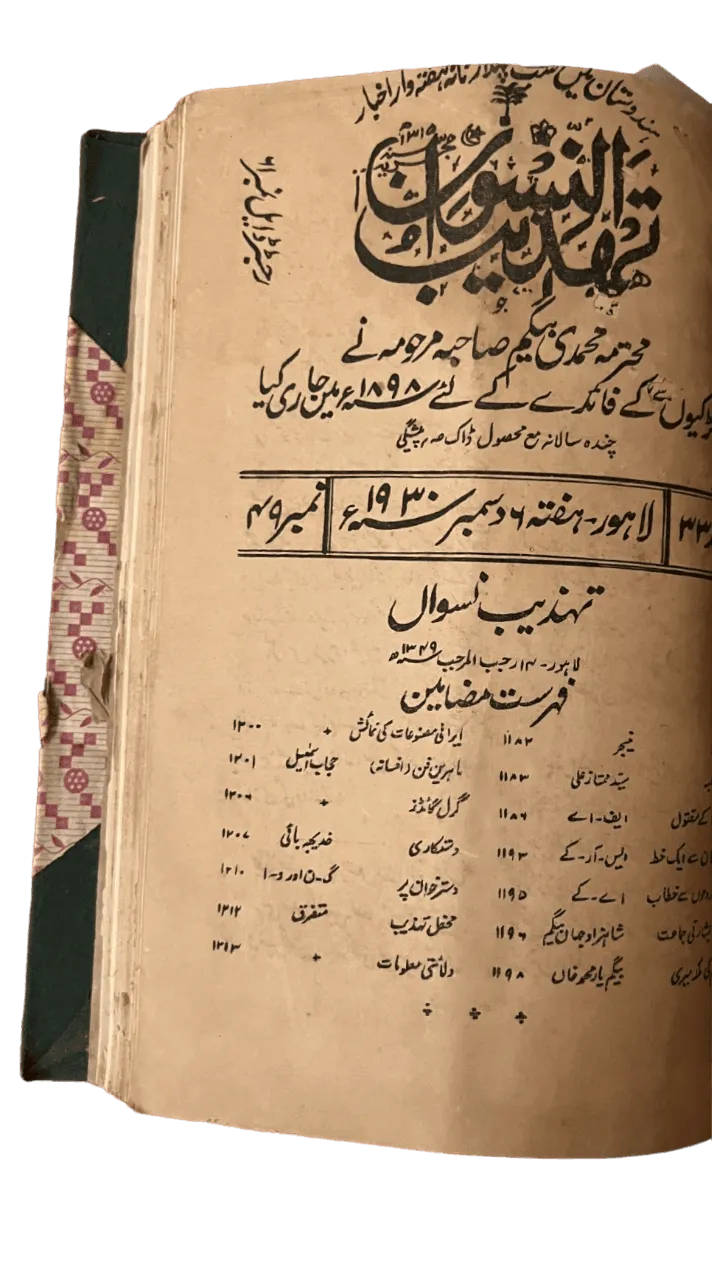 ہندوستان میں سب پہلا زنانہ ہفتہ وار اخبار
۱۳۱۵
تہذیب النسواں
رجسٹرڈ ایل نمبر ۶۱
محترمہ محمدی بیگم صاحبہ مرحومہ نے
کے فائدے کے لئے ۱۸۹۸ء میں جاری کیا
چندہ سالانہ مع محصول ڈاک صہ پیشگی
لاہور - ہفتہ ۶ دسمبر ۱۹۳۰ء نمبر ۴۹
تہذیب نسواں
لاہور - ۱۴ رجب المرجب ۱۳۴۹ھ
فہرست مضامین
منیجر ۱۱۸۲ ایرانی مصنوعات کی نمائش ۱۲۰۰
سید ممتاز علی ۱۱۸۳ ماہرین فن (افسانہ) حجاب اسمٰعیل ۱۲۰۱
کے مقتول ایف - اے ۱۱۸۶ گرل گائڈز ۱۲۰۶
سے ایک خط ایس - آر - کے ۱۱۹۳ دستکاری خدیجہ بائی ۱۲۰۷
سے خطاب اے - کے ۱۱۹۵ دسترخوان پر گ - ن اور و - ا ۱۲۱۰
جماعت شاہزاد جہان بیگم ۱۱۹۶ محفل تہذیب متفرق ۱۲۱۲
بیگم یار محمد خاں ۱۱۹۸ ولائتی معلومات ۱۲۱۳